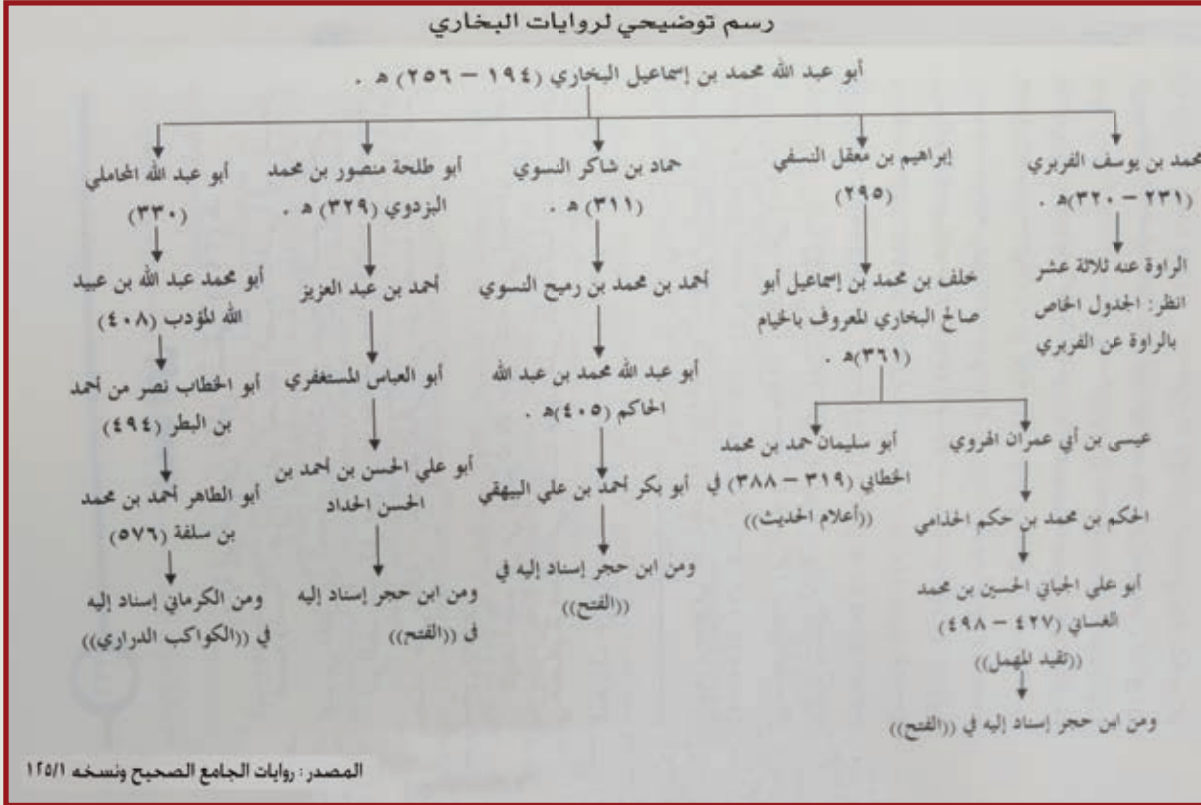 رسم توضيحي لروايات البخاري
أبو عبد الله محمد بن إسماعيل البخاري (١٩٤ – ٢٥٦) ه .
محمد بن يوسف الفربري
(٢٣١ – ٣٢٠)ه .
الراوة عنه ثلاثة عشر
انظر: الجدول الخاص
بالراوة عن الفربري
إبراهيم بن معقل النسفي
(٢٩٥)
خلف بن محمد بن إسماعيل أبو
صالح البخاري المعروف بالخيام
(٣٦١)ه .
عيسى بن أبي عمران الهروي
الحكم بن محمد بن حكم الحذامي
أبو علي الجياني الحسين بن محمد
الغساني (٤٢٧ – ٤٩٨)
((تقيد المهمل))
ومن ابن حجر إسناد إليه في ((الفتح))
أبو سليمان حمد بن محمد
الخطابي (٣١٩ – ٣٨٨) في
((أعلام الحديث))
حماد بن شاكر النسوي
(٣١١) ه .
أحمد بن محمد بن رميح النسوي
أبو عبد الله محمد بن عبد الله
الحاكم (٤٠٥)ه .
أبو بكر أحمد بن علي البيهقي
ومن ابن حجر إسناد إليه في
((الفتح))
أبو طلحة منصور بن محمد
البزدوي (٣٢٩) ه .
أحمد بن عبد العزيز
أبو العباس المستغفري
أبو علي الحسن بن أحمد بن
الحسن الحداد
ومن ابن حجر إسناد إليه
في ((الفتح))
أبو عبد الله المحاملي
(٣٣٠)
أبو محمد عبد الله بن عبيد
الله المؤدب (٤٠٨)
أبو الخطاب نصر من أحمد
بن البطر (٤٩٤)
أبو الطاهر أحمد بن محمد
بن سلفة (٥٧٦)
ومن الكرماني إسناد إليه
في ((الكواكب الدراري))
المصدر: روايات الجامع الصحيح ونسخه ١٢٥/١